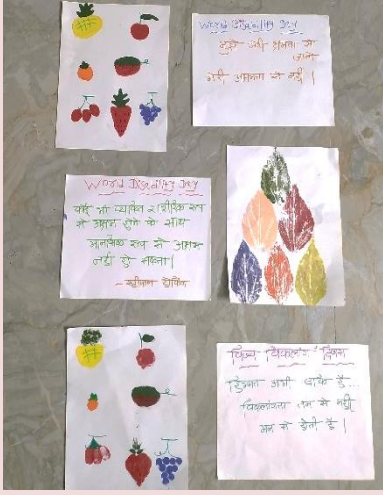 World Disability Day
मुझे मेरी क्षमता से
जानो
मेरी अक्षमता से नहीं |
World Disability Day
कोई भी व्यक्ति शारीरिक रूप
से अक्षम होने के साथ
मानसिक रूप से अक्षम
नहीं हो सकता |
- स्टीफन हॉकिंग
विश्व विकलांग दिवस
हिम्मत अभी बाकि है...
विकलांगता तन से नहीं
मन से होती है |